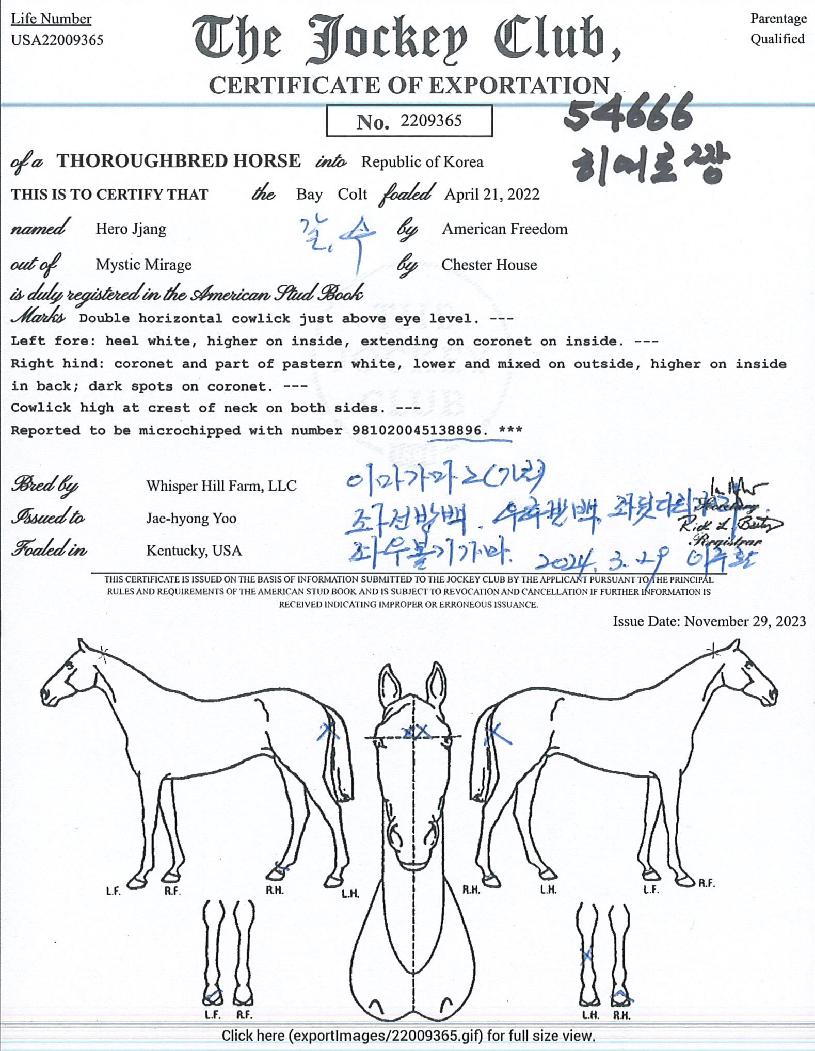 Life Number
USA22009365
The Jockey Club,
Parentage
Qualified
CERTIFICATE OF EXPORTATION
No. 2209365
54666
히어로짱
of a THOROUGHBRED HORSE into Republic of Korea
THIS IS TO CERTIFY THAT the Bay Colt foaled April 21, 2022
named Hero Jjang 갈. 수 by American Freedom
out of Mystic Mirage by Chester House
is duly registered in the American Stud Book
Marks Double horizontal cowlick just above eye level. ---
Left fore: heel white, higher on inside, extending on coronet on inside. ---
Right hind: coronet and part of pastern white, lower and mixed on outside, higher on inside
in back; dark spots on coronet. ---
Cowlick high at crest of neck on both sides. ---
Reported to be microchipped with number 981020045138896. ***
Bred by Whisper Hill Farm, LLC
Issued to Jae-hyong Yoo
Registrar
Foaled in Kentucky, USA 2024. 3. 29
THIS CERTIFICATE IS ISSUED ON THE BASIS OF INFORMATION SUBMITTED TO THE JOCKEY CLUB BY THE APPLICANT PURSUANT TO THE PRINCIPAL
RULES AND REQUIREMENTS OF THE AMERICAN STUD BOOK AND IS SUBJECT TO REVOCATION AND CANCELLATION IF FURTHER INFORMATION IS
RECEIVED INDICATING IMPROPER OR ERRONEOUS ISSUANCE.
Issue Date: November 29, 2023
L.F. R.F. R.H. L.H. R.H. L.H. L.F. R.F.
L.F. R.F. L.H. R.H.
Click here (exportImages/22009365.gif) for full size view.